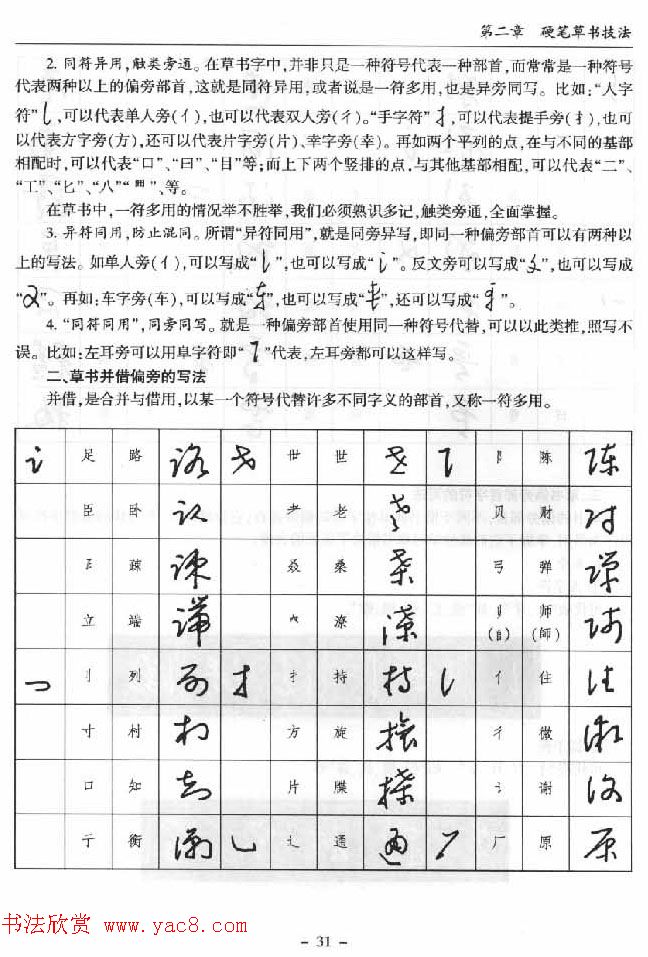 第二章 硬笔草书技法
2. 同符异用,触类旁通。在草书字中,并非只是一种符号代表一种部首,而常常是一种符号
代表两种以上的偏旁部首,这就是同符异用,或者说是一符多用,也是异旁同写。比如:“人字
符” ,可以代表单人旁(亻),也可以代表双人旁(彳)。“手字符” ,可以代表提手旁(扌),也可
以代表方字旁(方),还可以代表片字旁(片)、幸字旁(幸)。再如两个平列的点,在与不同的基部
相配时,可以代表“口”、“曰”、“目”等;而上下两个竖排的点,与其他基部相配,可以代表“二”、
“工”、“匕”、“八”“ ”、等。
在草书中,一符多用的情况举不胜举,我们必须熟识多记,触类旁通,全面掌握。
3. 异符同用,防止混同。所谓“异符同用”,就是同旁异写,即同一种偏旁部首可以有两种以
上的写法。如单人旁(亻),可以写成“ ”,也可以写成“ ”。反文旁可以写成“ ”,也可以写成
“ ”。再如:车字旁(车),可以写成“ ”,也可以写成“ ”,还可以写成“ ”。
4. “同符同用”,同旁同写。就是一种偏旁部首使用同一种符号代替,可以以此类推,照写不
误。比如:左耳旁可以用阜字符即“ ”代表,左耳旁都可以这样写。
二、草书并借偏旁的写法
并借,是合并与借用,以某一个符号代替许多不同字义的部首,又称一符多用。
讠 足 路 路 世 世 世 阝 陈 陈
臣 卧 卧 耂 老 老 贝 财 财
疎 疎 叒 桑 桑 弓 弹 弹
立 端 端 潦 潦 (𠂤) 师(師) 师
刂 列 列 扌 持 持 亻 住 住
寸 村 村 方 旋 旋 彳 微 微
口 知 知 片 牒 牒 讠 谢 谢
亍 衡 衡 辶 通 通 厂 原 原
书法欣赏 www.yac8.com
- 31 -